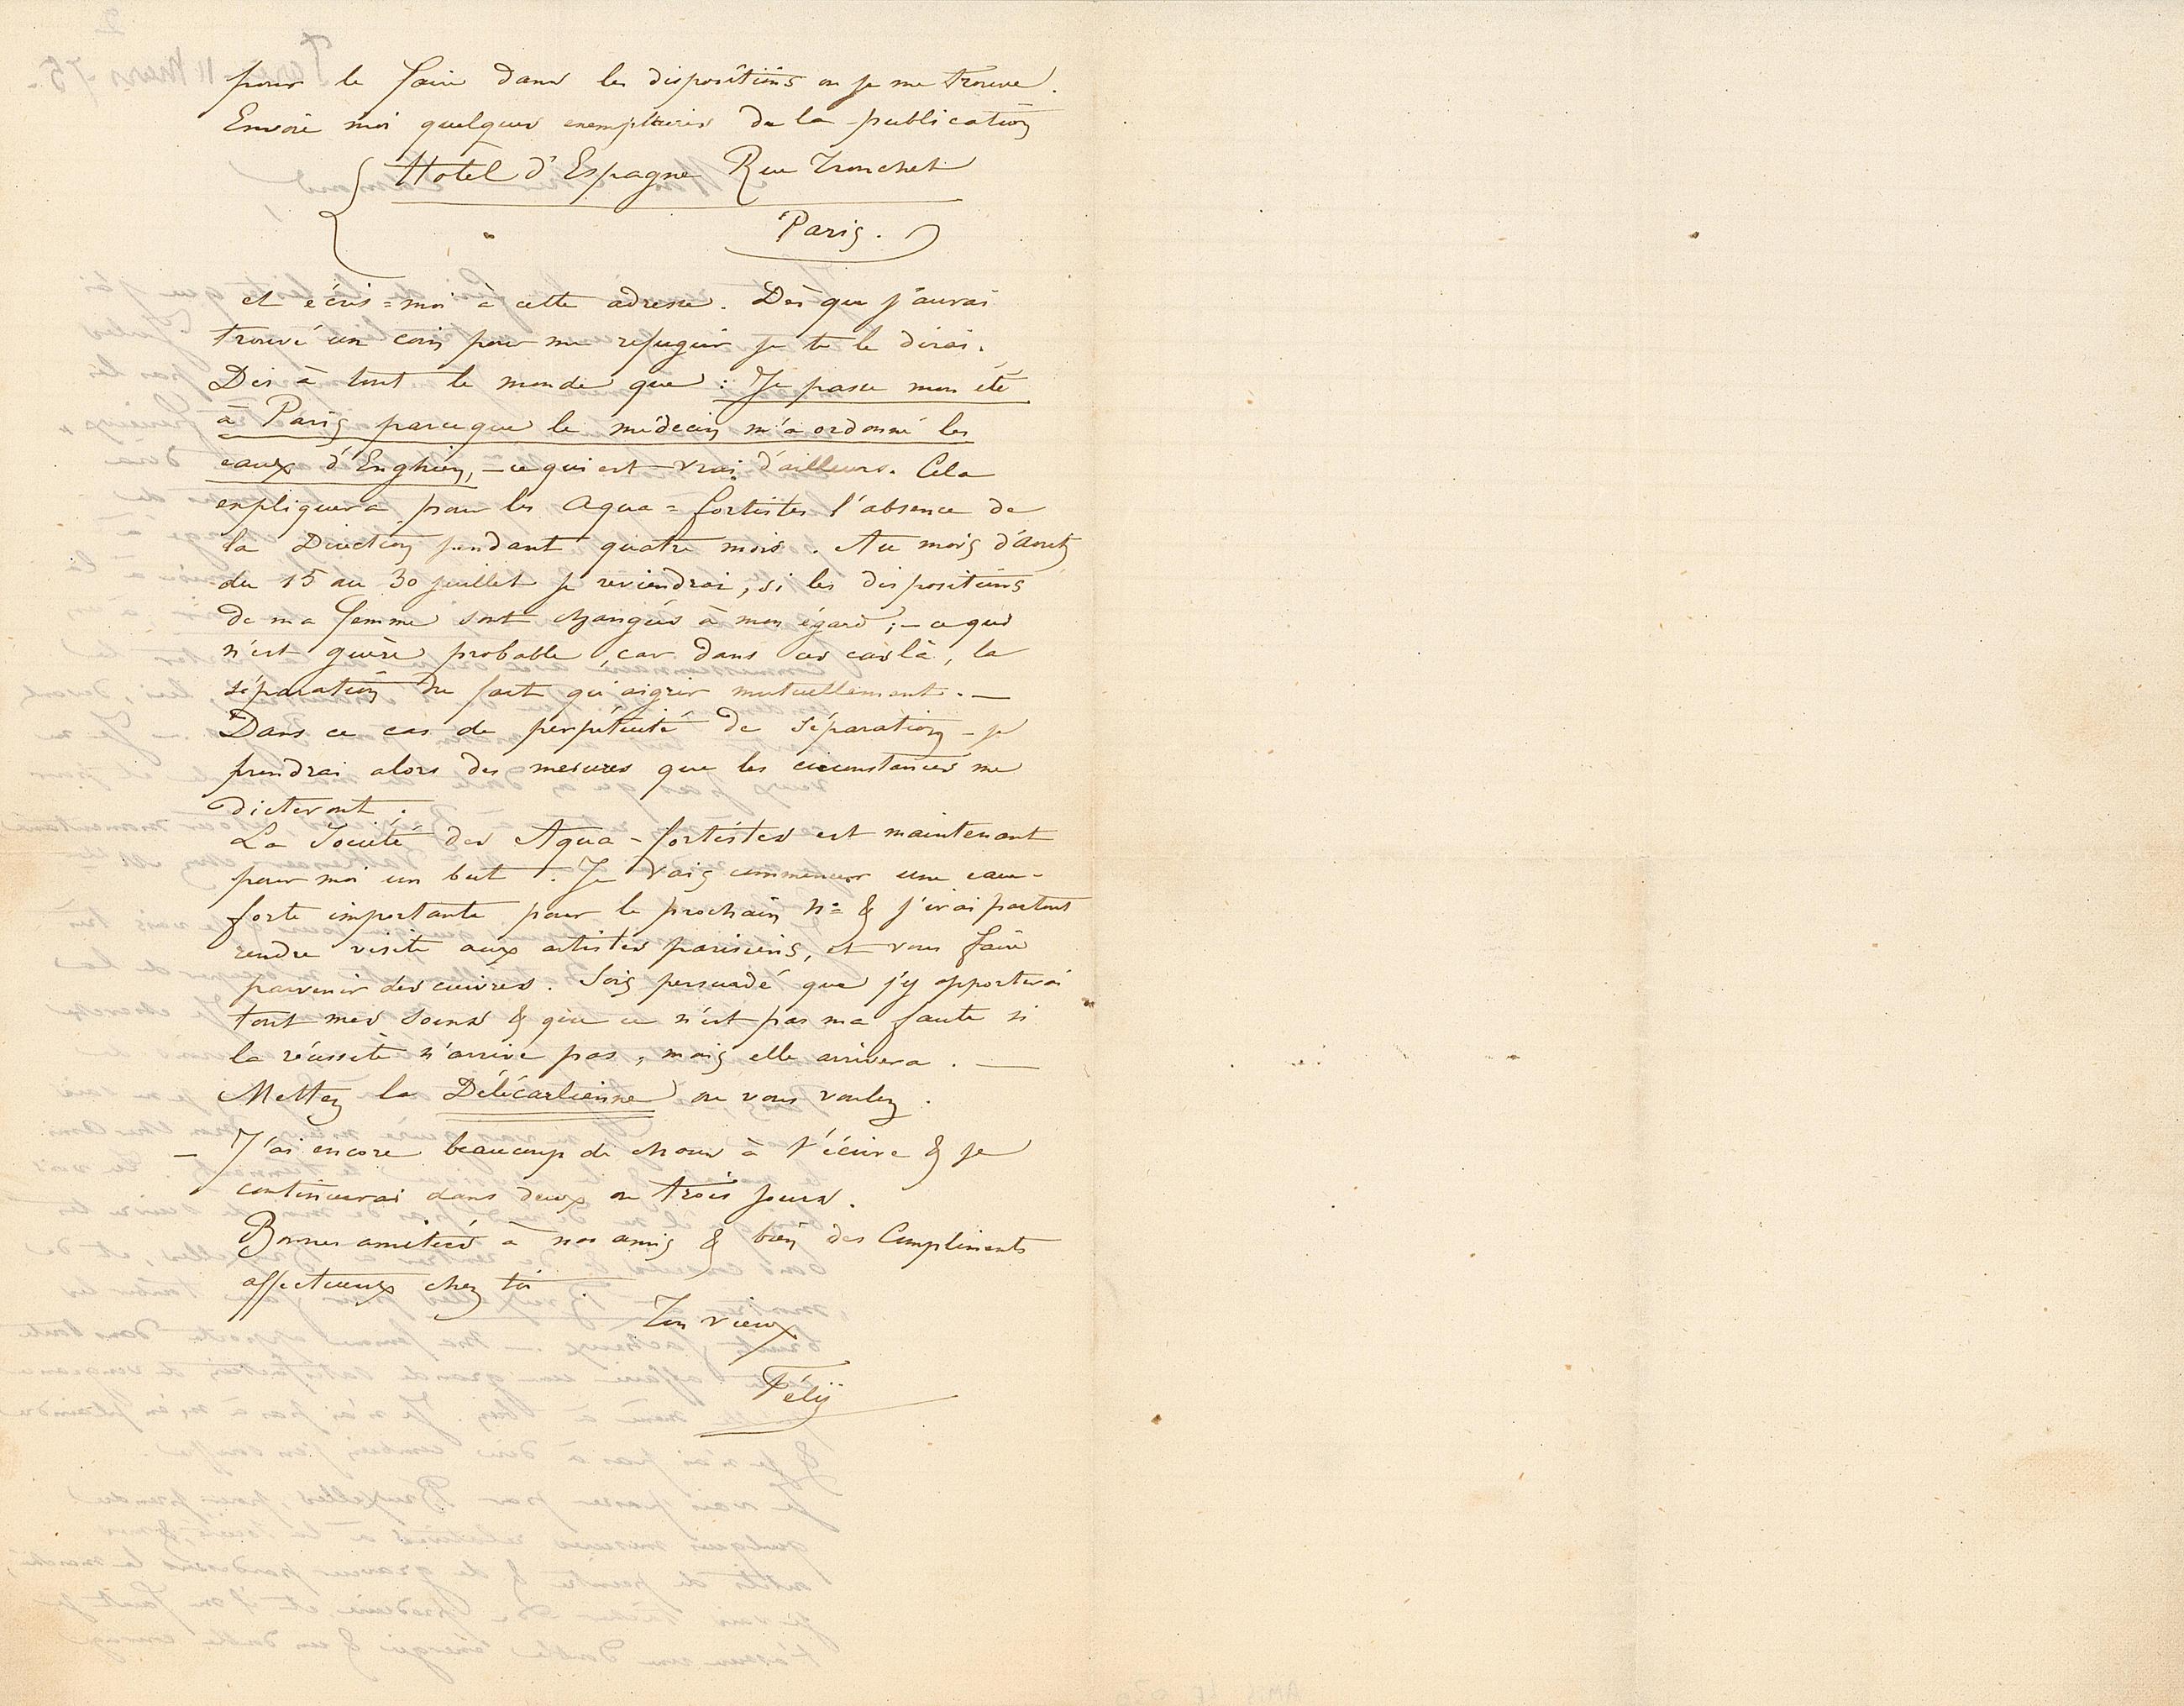 pour le faire dans les dispositions ou je me trouve.
Envoie moi quelques exemplaires de la publication
Hotel d'Espagne Rue Tronchet
Paris.
et écris=moi à cette adresse. Dès que j'aurai
trouvé un coin pour me refugier je te le dirai.
Dis à tout le monde que : Je passe mon été
à Paris parceque le médecin m'a ordonné les
eaux d'Enghien, – ce qui est vrai d'ailleurs. Cela
expliquera pour les Aqua=fortistes l'absence de
la Direction pendant quatre mois. Au mois d'Aout
du 15 au 30 juillet je reviendrai, si les dispositions
de ma femme sont changées à mon égard ; – ce qui
n'est guère probable, car dans ces cas là, la
séparation ne fait qu'aigrir mutuellement. —
Dans ce cas de perpétuité de séparation – je
prendrai alors des mesures que les circonstances me
dicteront.
La Société des Aqua-fortistes est maintenant
pour moi un but. Je vais commencer une eau-
forte importante pour le prochain n° & j'irai partout
rendre visite aux artistes parisiens, et vous faire
parvenir des cuivres. Sois persuadé que j'y apporterai
tout mes soins & que ce n'est pas ma faute si
la réussite n'arrive pas, mais elle arrivera. —
Mettez la Délécarlienne ou vous voulez.
– J'ai encore beaucoup de choses à t'écrire & je
continuerai dans deux ou trois jours.
Bonnes amitiés à nos amis & bien des Compliments
affectueux chez toi.
Ton vieux
Fély